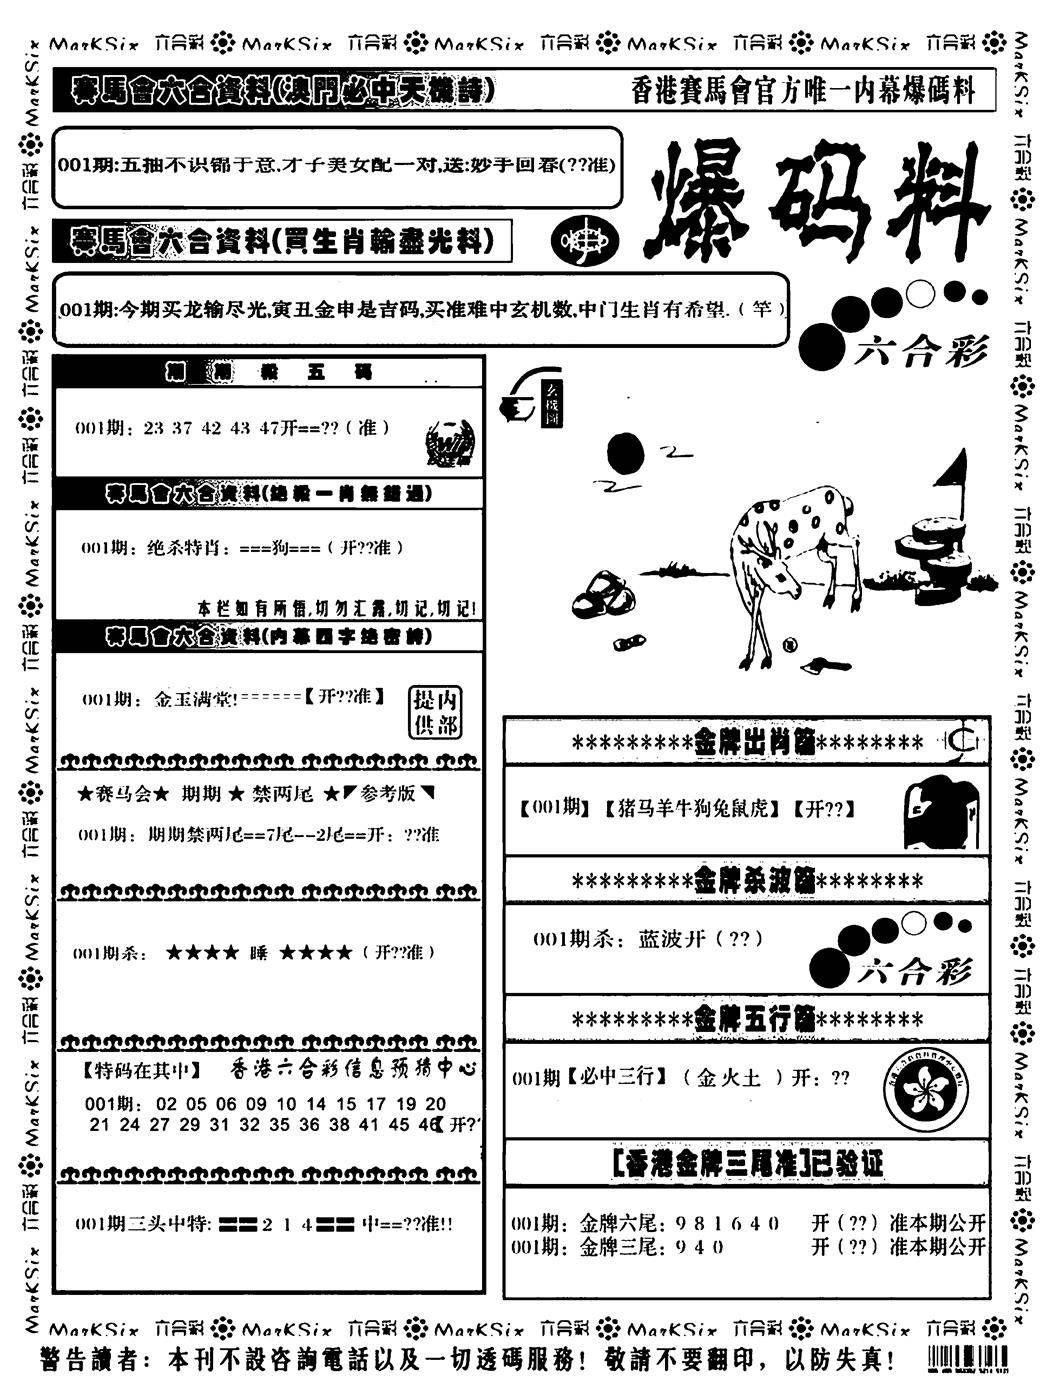 MarKSix 六合彩 MarKSix 六合彩 MarKSix 六合彩 MarKSix 六合彩 MarKSix 六合彩
賽馬會六合資料(澳門必中天機詩)
香港賽馬會官方唯一内幕爆碼料
001期:五抽不识锦于意.才子美女配一对,送:妙手回春(??准)
爆码料
賽馬會六合資料(買生肖輸盡光料)
001期:今期买龙输尽光,寅丑金申是吉码,买准难中玄机数,中门生肖有希望.（竿）
六合彩
期期殺五碼
001期: 23 37 42 43 47开==??（准）
玄機圖
賽馬會六合資料(绝殺一肖無錯過)
001期: 绝杀特肖: ===狗===（开??准）
本栏如有所悟,切勿汇露,切记,切记!
賽馬會六合資料(内幕四字绝密詩)
001期: 金玉满堂!======【开??准】
提内
供部
★赛马会★ 期期 ★ 禁两尾 ★◤参考版◥
001期: 期期禁两尾==7尾--2尾==开: ??准
001期杀: ★★★★ 睡 ★★★★（开??准）
【特码在其中】 香港六合彩信息预猜中心
001期: 02 05 06 09 10 14 15 17 19 20
21 24 27 29 31 32 35 36 38 41 45 46【开?
001期三头中特: 〓〓2 1 4〓〓 中==??准!!
*********金牌出肖篇********
【001期】【猪马羊牛狗兔鼠虎】【开??】
*********金牌杀波篇********
001期杀: 蓝波开（??）
六合彩
*********金牌五行篇********
001期【必中三行】（金火土）开: ??
[香港金牌三尾准]已验证
001期: 金牌六尾: 9 8 1 6 4 0 开（??）准本期公开
001期: 金牌三尾: 9 4 0 开（??）准本期公开
MarKSix 六合彩 MarKSix 六合彩 MarKSix 六合彩 MarKSix 六合彩 MarKSix 六合彩
警告讀者: 本刊不設咨詢電話以及一切透碼服務! 敬請不要翻印, 以防失真!